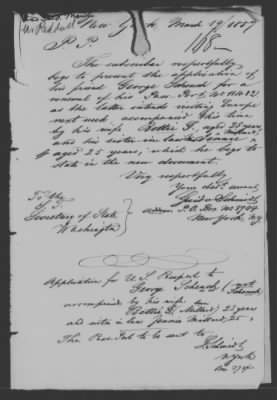 New York March 19/1887
P. P.
The subscriber respectfully
begs to present the application of
his friend George Schenck for a
renewal of his Pass Port No
as the latter intends visiting Europe
next week, accompanied this time
by his wife Hettie G, aged 23 years
and his sister in law
of aged 25 years, and he begs to
state in the new document.
Very respectfully
Your obt. servt.
To the
Secretary of State
Washington
address P.O. Box No 3704
New York, NY
Application for U.S. Passport to
George Schenck
accompanied by his wife
Hettie G. 23 years
and sister in law Jennie Millard, 25
The Pass Port to be sent to
N York
Box 3704